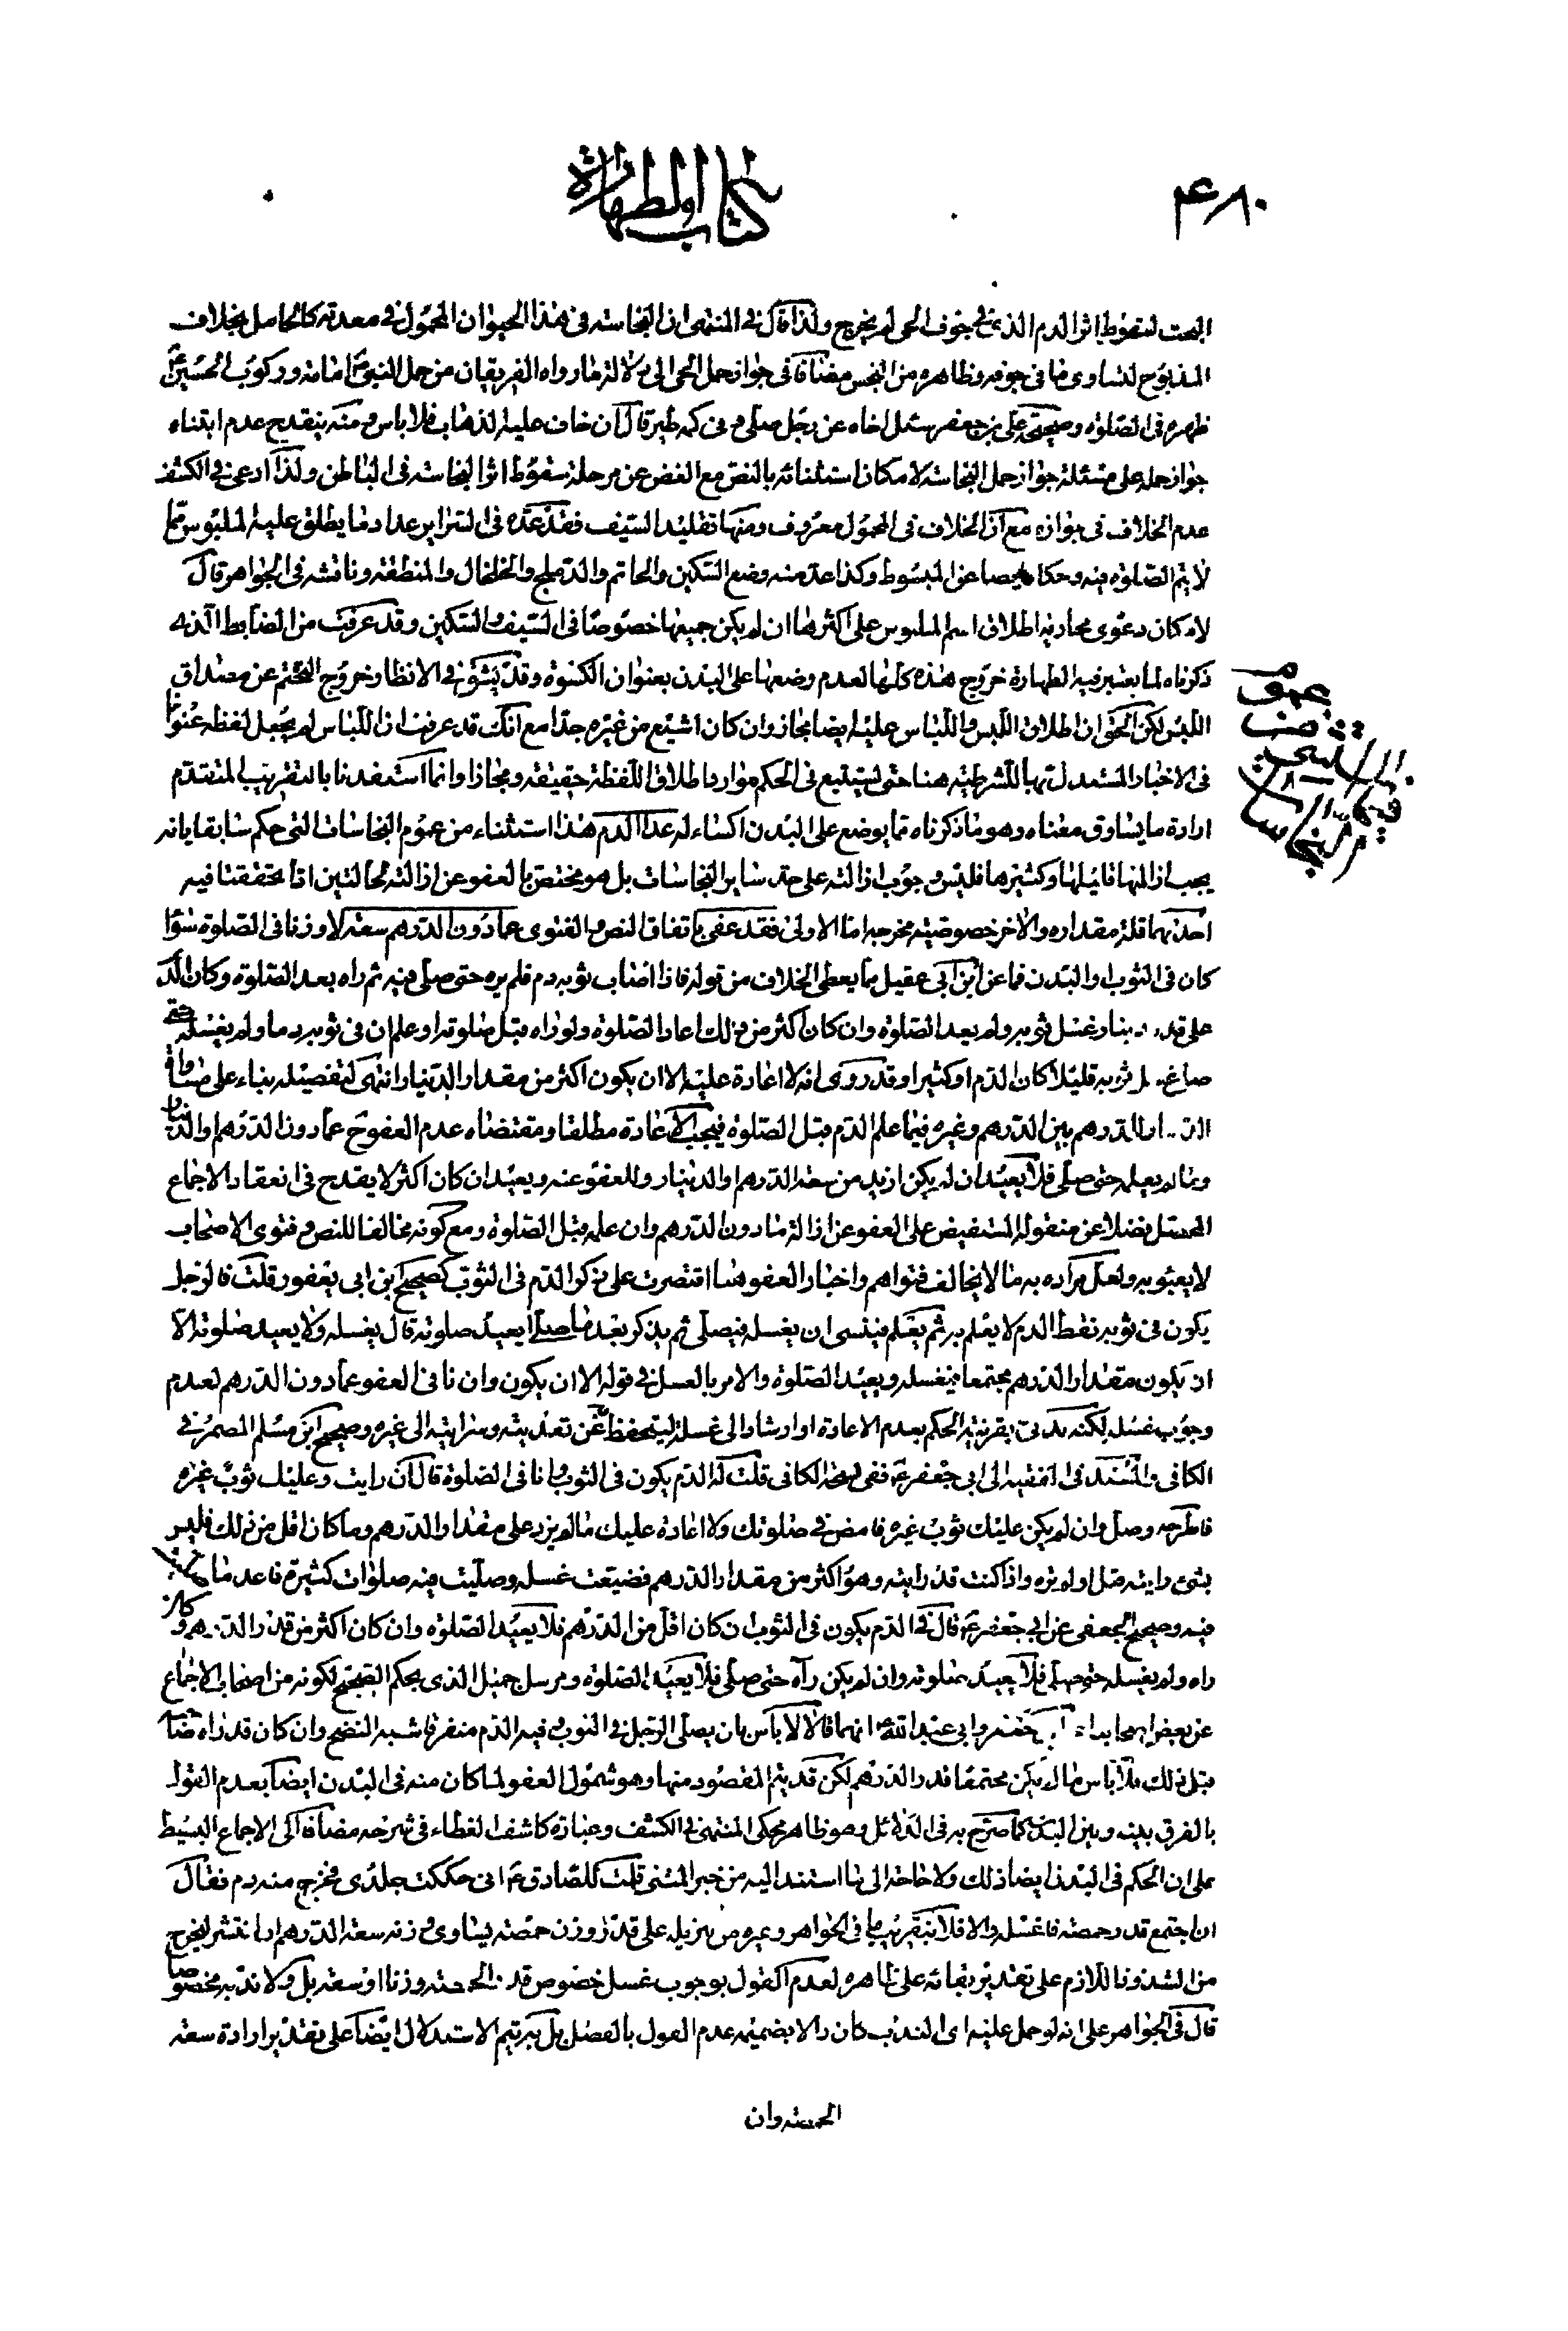 ۴۸۰
كتاب الطهارة
البحث لسقوط اثر الدم الذى فى جوف الحى لم يخرج ولذا قال فى المنتهى ان النجاسته فى هذا الحيوان المحمول فى معدته كالحامل بخلاف
المذبوح لتساوى ما فى جوفه وظاهره من النجس مضافا فى جواز حمل الحى الى دلالة ما رواه الفريقان من حمل النبى ص امامة وركوب الحسين ع
ظهره فى الصلوة وصحيحة على بن جعفر سئل اخاه عن رجل صلى وفى كمه طير قال ان خاف عليه الذهاب فلا باس ومنه ينقدح عدم ابتناء
جواز حمله على مسئلة جواز حمل النجاسته لامكان استثنائه بالنص مع الغض عن مرحلة سقوط اثر النجاسته فى الباطن ولذا ادعى فى الكشف
عدم الخلاف فى جوازه مع ان الخلاف فى المحمول معروف ومنها تقليد السيف فقد عده فى السرائر عداد ما يطلق عليه الملبوس مما
لا يتم الصلوة فيه وحكاه ايضا عن المبسوط وكذا عد منه وضع السكين والخاتم والدملج والخلخال والمنطقه وناقشه فى الجواهر قال
لامكان دعوى مجازية اطلاق اسم الملبوس على اكثرها ان لم يكن جميعها خصوصا فى السيف والسكين وقد عرفت من الضابط الذى
ذكرناه لما يعتبر فيه الطهارة خروج هذه كلها لعدم وضعها على البدن بعنوان الكسوة وقد يتشوش فى الانظار خروج التختم عن مصداق
اللبس لكن الحق ان اطلاق اللبس واللباس عليه ايضا مجاز وان كان اشيع من غيره جدا مع انك قد عرفت ان اللباس لم يجعل لفظه عنوانا
فى الاخبار المستدل بها للشرطية هنا حتى يستتبع فى الحكم موارد اطلاق اللفظة حقيقة ومجازا وانما استفدنا بالتقريب المتقدم
ارادة ما يساوق معناه وهو ما ذكرناه مما يوضع على البدن اكتساء له عدا الدم هذا استثناء من عموم النجاسات التى حكم سابقا بانه
يجب ازالتها قليلها وكثيرها فليس وجوب ازالته على حد ساير النجاسات بل هو مختص بالعفو عن ازالته لحالتين اذا تحققتا فيه
احدهما قلة مقداره والاخر خصوصية مخرجه اما الاولى فقد عفى باتفاق النص والفتوى عما دون الدرهم سعة لا وزنا فى الصلوة سواء
كان فى الثوب او البدن فما عن ابن ابى عقيل مما يعطى الخلاف من قوله فاذا اصاب ثوبه دم فلم يره حتى صلى فيه ثم راه بعد الصلوة وكان الدم
على قدر دينار غسل ثوبه ولم يعد الصلوة وان كان اكثر من ذلك اعاد الصلوة ولو راه قبل صلوته او علم ان فى ثوبه دما ولم يغسله حتى
صلى ثوبه قليلا كان الدم او كثيرا وقد روى انه لا اعادة عليه الا ان يكون اكثر من مقدار الدينار انتهى لتفصيله بناء على مساواة
الدرهم بين الدرهم وغيره فيما علم الدم قبل الصلوة فيجب الاعادة مطلقا ومقتضاه عدم العفو ح عما دون الدرهم والدينار
وما لم يعلم حتى صلى فلا يعيد ان لم يكن ازيد من سعة الدرهم والدينار وللعفو عنه ويعيد ان كان اكثر لا يقدح فى انعقاد الاجماع
المحصل فضلا عن منقوله المستفيض على العفو عن ازالة ما دون الدرهم وان علم قبل الصلوة ومع كونه مخالفا للنص وفتوى الاصحاب
لا يعبؤ به ولعل مراده به ما لا يخالف فتواهم واخبار العفو هنا اقتصرت على ذكر الدم فى الثوب كصحيح ابن ابى يعفور قلت فالرجل
يكون فى ثوبه نقط الدم لا يعلم به ثم يعلم فينسى ان يغسله فيصلى ثم يذكر بعد ما صلى ايعيد صلوته قال يغسله ولا يعيد صلوته الا
ان يكون مقدار الدرهم مجتمعا فيغسله ويعيد الصلوة والامر بالغسل فى قوله الا ان يكون وان نافى العفو عما دون الدرهم لعدم
وجوب غسله لكنه ندبى بقرينة الحكم بعدم الاعادة او ارشاد الى غسله ليتحفظ عن تعديته وسرايته الى غيره وصحيح ابن مسلم المضمر فى
الكافى والمسند فى الفقيه الى ابى جعفر ع ففى نسخة الكافى قلت له الدم يكون فى الثوب وانا فى الصلوة قال ان رايت وعليك ثوب غيره
فاطرحه وصل وان لم يكن عليك ثوب غيره فامض فى صلوتك ولا اعادة عليك ما لم يزد على مقدار الدرهم وما كان اقل من ذلك فليس
بشئ رايته قبل او لم تره واذا كنت قد رايته وهو اكثر من مقدار الدرهم فضيعت غسله وصليت فيه صلوات كثيرة فاعد ما صليت
فيه وصحيح الجعفى عن ابى جعفر ع قال فى الدم يكون فى الثوب ان كان اقل من الدرهم فلا يعيد الصلوة وان كان اكثر من قدر الدرهم وكان
راه ولم يغسله حتى صلى فلا يعيد صلوته وان لم يكن رآه حتى صلى فلا يعيد الصلوة ومرسل جميل الذى بحكم الصحيح لكونه من اصحاب الاجماع
عن بعض اصحابنا عن ابى جعفر وابى عبد الله ع انهما قالا لا باس بان يصلى الرجل فى الثوب وفيه الدم متفرقا شبه النضح وان كان قد راه صاحبه
قبل ذلك فلا باس ما لم يكن مجتمعا قدر الدرهم لكن قد يتم المقصود منها وهو شمول العفو لما كان منه فى البدن ايضا بعدم القول
بالفرق بينه وبين البدن كما صرح به فى الدلائل وهو ظاهر محكى المنتهى فى الكشف وعبارة كاشف الغطاء فى شرحه مضافا الى الاجماع البسيط
على ان الحكم فى البدن ايضا ذلك ولا حاجة الى ما استند اليه من خبر المثنى قلت للصادق ع انى حككت جلدى فخرج منه دم فقال
ان اجتمع قدر حمصة فاغسله والا فلا بتقريب ما فى الجواهر وغيره من تنزيله على قدر وزن حمصة يساوى وزنه سعة الدرهم اذا انتشر ليخرج
من الشذوذ اللازم على تقدير بقائه على ظاهره لعدم القول بوجوب غسل خصوص قدر الحمصة وزنا او سعة بل ولا ندبه مخصوصا
قال فى الجواهر على انه لو حمل عليه اى الندب كان دالا بضميمة عدم القول بالفصل بل به يتم الاستدلال ايضا على تقدير ارادة سعة
الحمصة وان